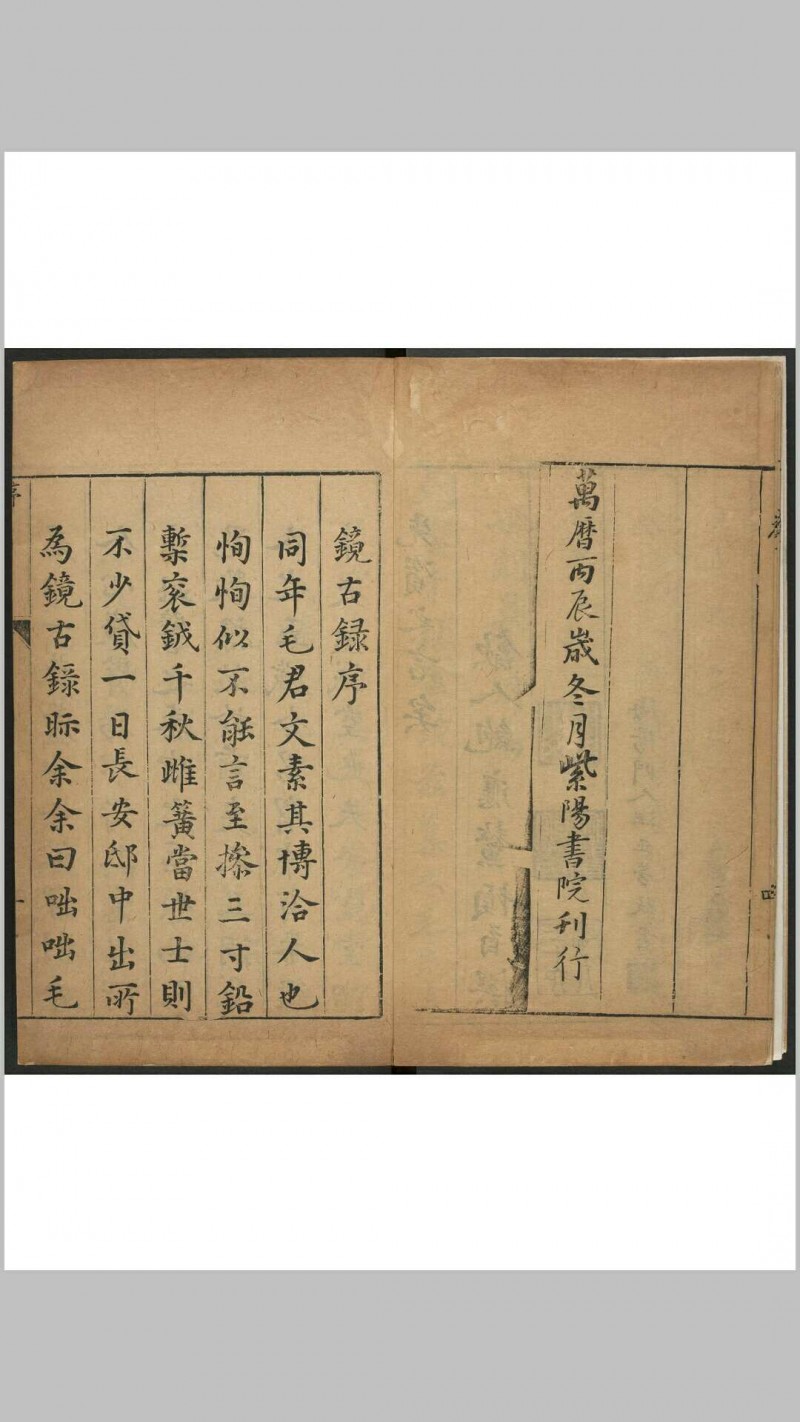 萬曆丙辰歲冬月紫陽書院刊行
鏡古録序
同年毛君文素其博洽人也
恂恂似不能言至摻三寸鉛
槧衮鉞千秋雌簧當世士則
不少貸一日長安邸中出所
為鏡古録眎余余曰咄咄毛
序
一